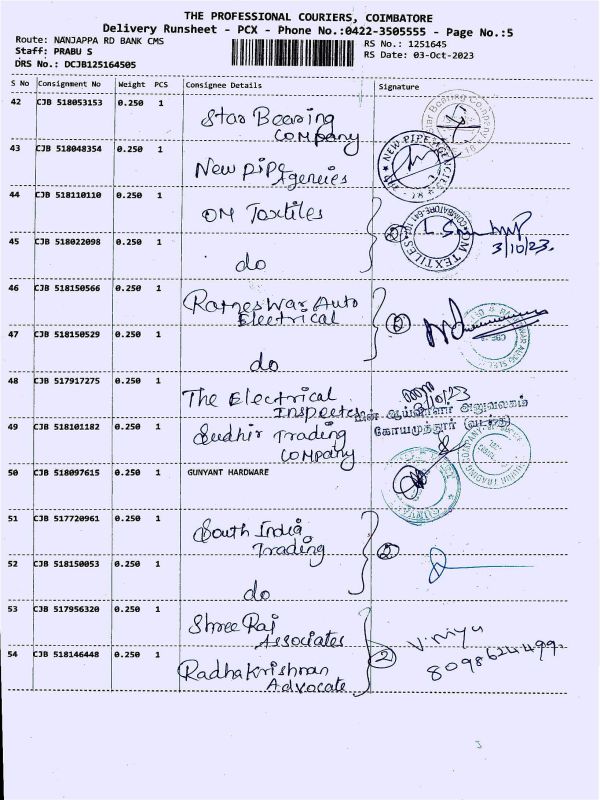 THE PROFESSIONAL COURIERS, COIMBATORE
Delivery Runsheet - PCX - Phone No.:0422-3505555 - Page No.:5
Route: NANJAPPA RD BANK CMS
RS No.: 1251645
Staff: PRABU S
RS Date: 03-Oct-2023
DRS No.: DCJB125164505
S No Consignment No Weight PCS Consignee Details Signature
42 CJB 518053153 0.250 1 Star Bearing
Company
43 CJB 518048354 0.250 1 New Pipe
Agencies
NEW PIPE AGENCIES
44 CJB 518110110 0.250 1 OM Textiles
OM TEXTILES
COIMBATORE-641
3/10/23.
45 CJB 518022098 0.250 1 do
46 CJB 518150566 0.250 1 Rameswar Auto
Electrical
47 CJB 518150529 0.250 1 do
48 CJB 517917275 0.250 1 The Electrical
Inspector
மின் ஆய்வாளர் அலுவலகம்
கோயமுத்தூர் (வடக்கு)
49 CJB 518101182 0.250 1 Sudhir Trading
Company
50 CJB 518097615 0.250 1 GUNYANT HARDWARE
51 CJB 517720961 0.250 1 South India
Trading
2
52 CJB 518150053 0.250 1 do
53 CJB 517956320 0.250 1 Shree Raj
Associates
V. niya
54 CJB 518146448 0.250 1 Radhakrishnan
Advocate
2
8098624499